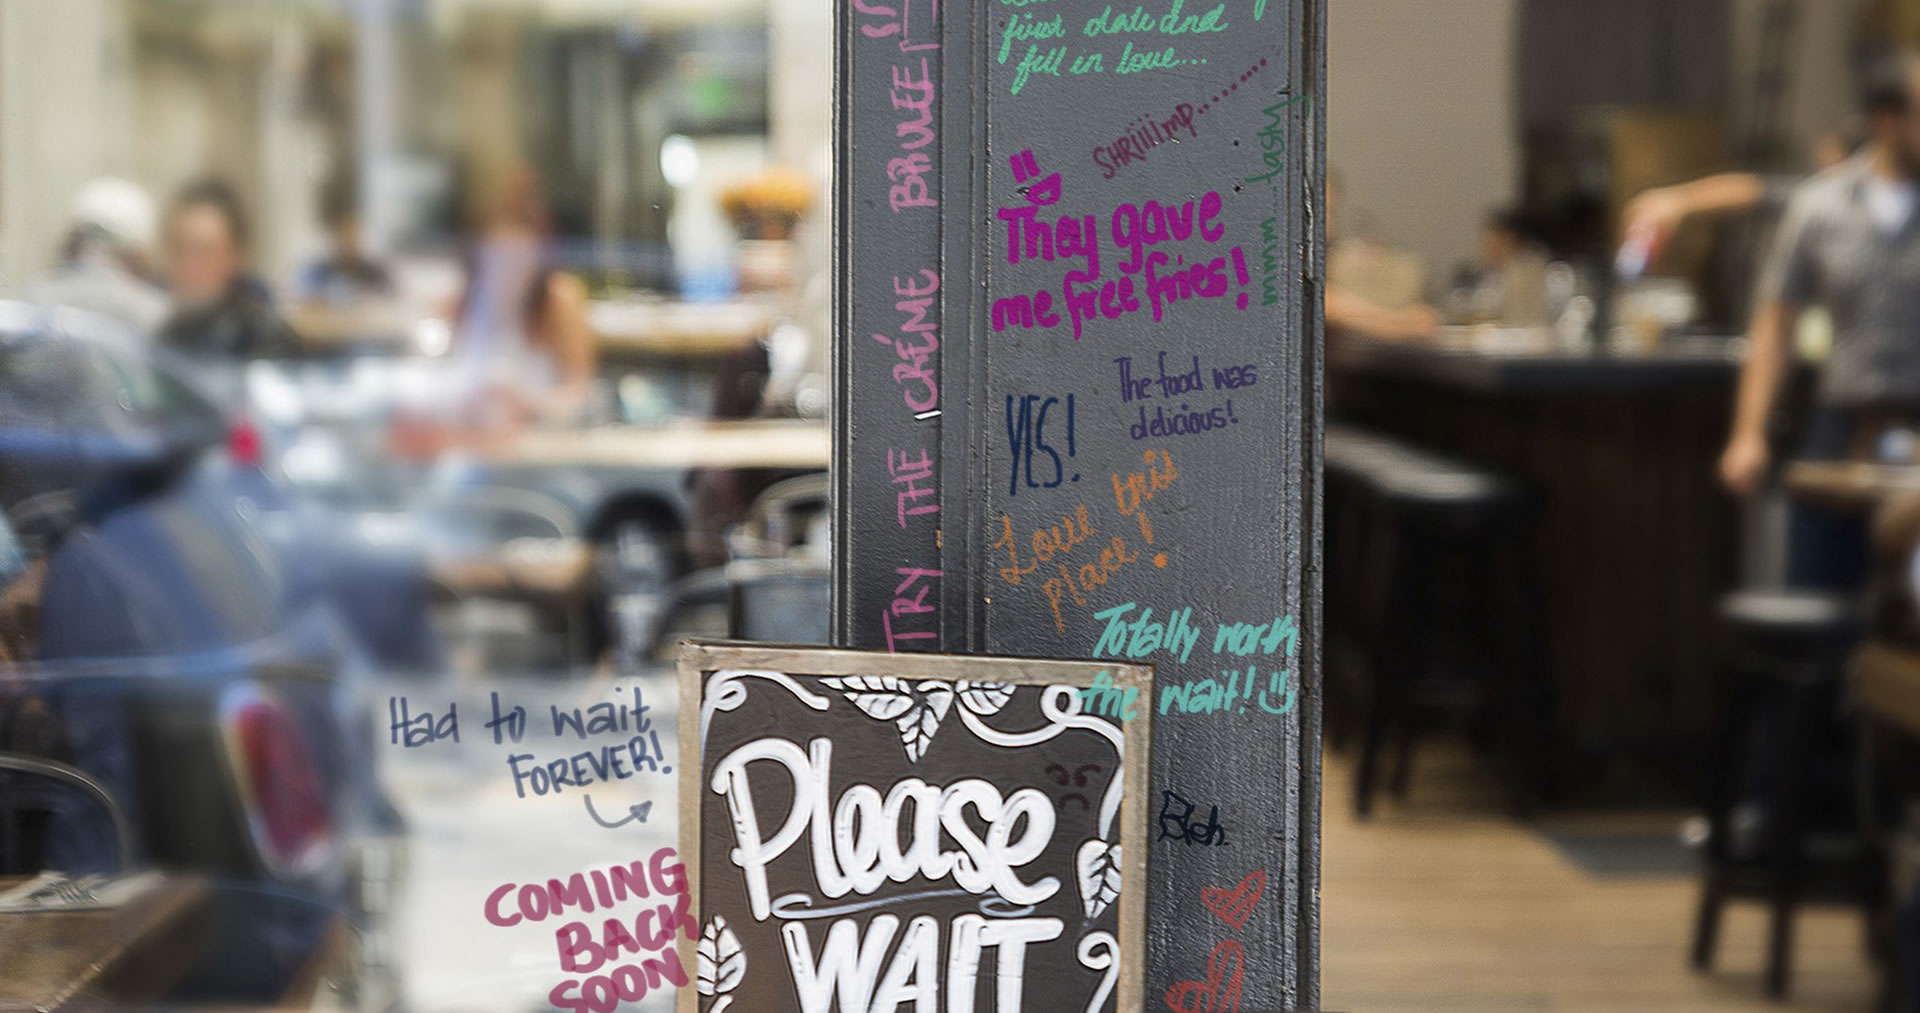 first date and
fell in love...
SHRiiiimp........
mmm..tasty
They gave
me free fries!
TRY THE CRÉME BRULEE
The food was
delicious!
YES!
Love this
place!
Totally worth
the wait!
Had to wait
FOREVER!
Please
WAIT
COMING
BACK
SOON